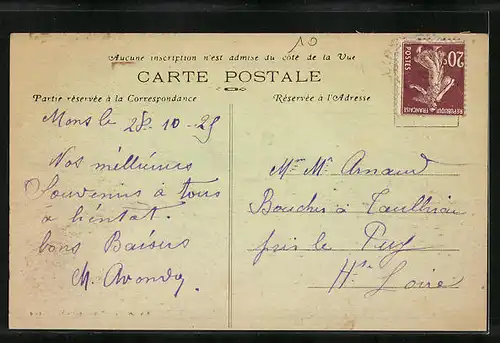 10
Aucune inscription n'est admise du côté de la Vue
CARTE POSTALE
Partie réservée à la Correspondance
Réservée à l'Adresse
20c
POSTES
REPUBLIQUE FRANÇAISE
Mons le 28-10-25
Nos meilleures
Souvenirs à tous
a bientot.
bons Baisers
M.
Mme Mr Arnaud
Boucher à Taulhac
près le Puy
Hte Loire